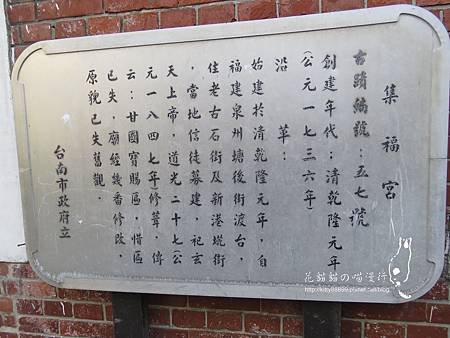 集福宮
古蹟編號：五七號
創建年代：清乾隆元年
(公元一七三六年)
沿革：
始建於清乾隆元年，自
福建泉州塘後街渡台，
佳老古石街及新港墘街
，當地信徒募建，祀玄
天上帝，道光二十七公
元一八四七年)修葺，傳
云：廿國寶賜匾，惜匾
已失，廟經幾番修改，
原貌已失舊觀。
台南市政府立
花貓貓の喵漫行